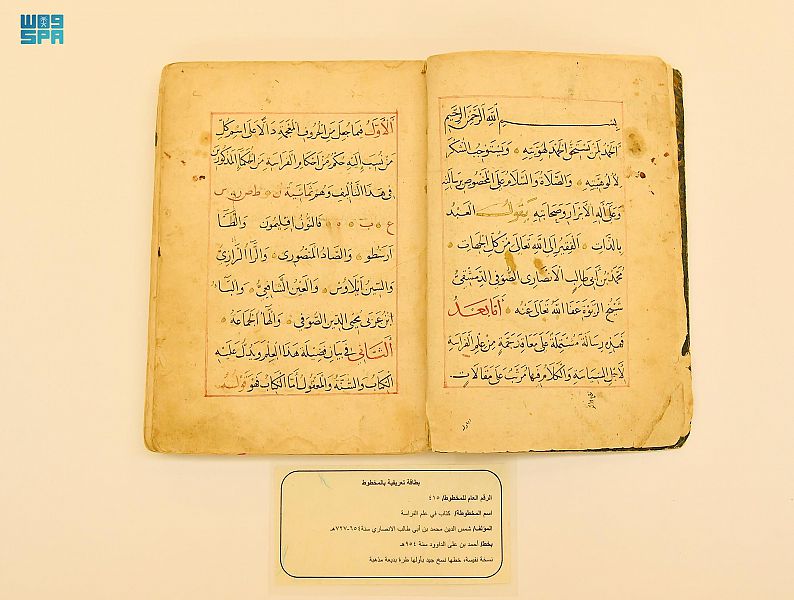 واس
SPA
بسم الله الرحمن الرحيم
الحمد لمن يستحق الحمد لهويته ويستوجب الشكر
لالوهيته والصلاة والسلام على المخصوص برسالته
وعلى اله الابرار وصحابته يقول العبد
بالذات الفقير الى الله تعالى من كل الجهات
محمد بن ابي طالب الانصارى الصوفي الدمشقي
شيخ الربوة عفا الله تعالى عنه أما بعد
فهذه رسالة مشتملة على معاقد جمة من علم الفراسة
لاجل السياسة والكلام فيها مرتب على مقالات
الاول فيما جعل من الحروف المعجمة دالا على اسم كل
من نسب اليه حكم من احكام الفراسة من الحكما المذكورين
في هذا التأليف وهو ثمانية ن ط ص ر س
ع ب ه فالنون افليمون والطا
ارسطو والصاد المنصورى والرا الرازى
والسين ايلاوس والعين الشافعي والباء
ابن عربى محيى الدين الصوفي والها الجماعة
الثاني في بيان فضيلة هذا العلم ويدل عليه
الكتاب والسنة والمعقول أما الكتاب فهو قوله
بطاقة تعريفية بالمخطوط
الرقم العام للمخطوط/ ٤١٥
اسم المخطوطة/ كتاب في علم الفراسة
المؤلف/ شمس الدين محمد بن أبي طالب الانصاري سنة ٦٥٤-٧٢٧هـ
بخط/ أحمد بن على الداوود سنة ٩٥٤هـ
نسخة نفيسة، خطها نسخ جيد بأولها طرة بديعة مذهبة